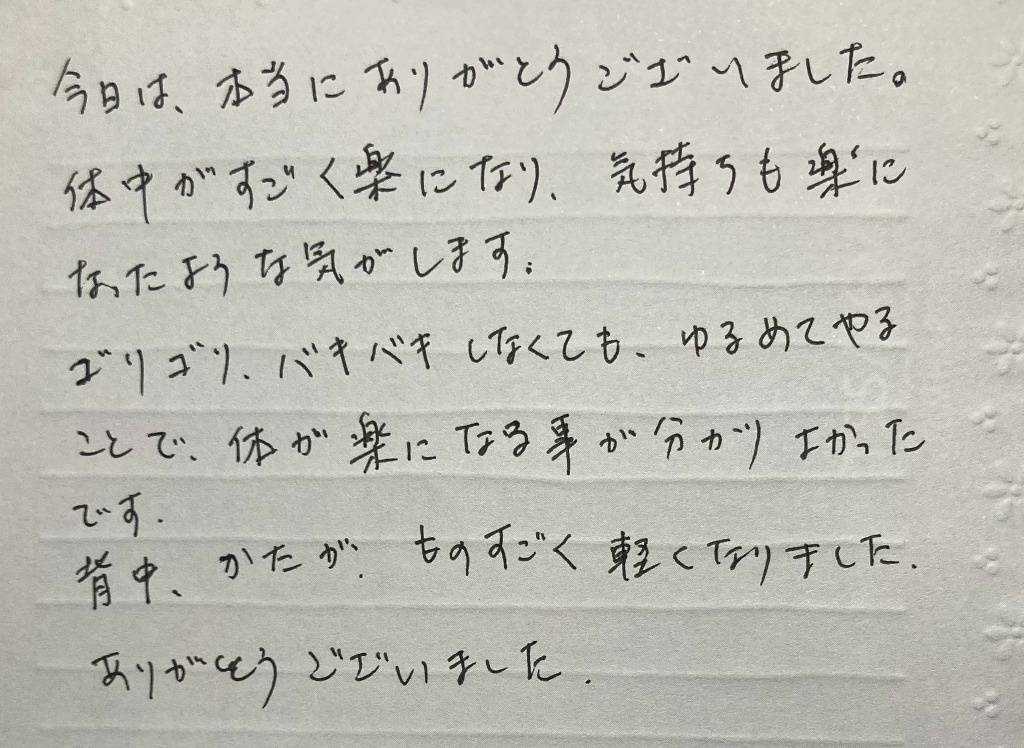 今日は、本当にありがとうございました。
体中がすごく楽になり、気持ちも楽に
なったような気がします。
ゴリゴリ、バキバキしなくても、ゆるめてやる
ことで、体が楽になる事が分かりよかった
です.
背中、かたが、ものすごく軽くなりました.
ありがとうございました.